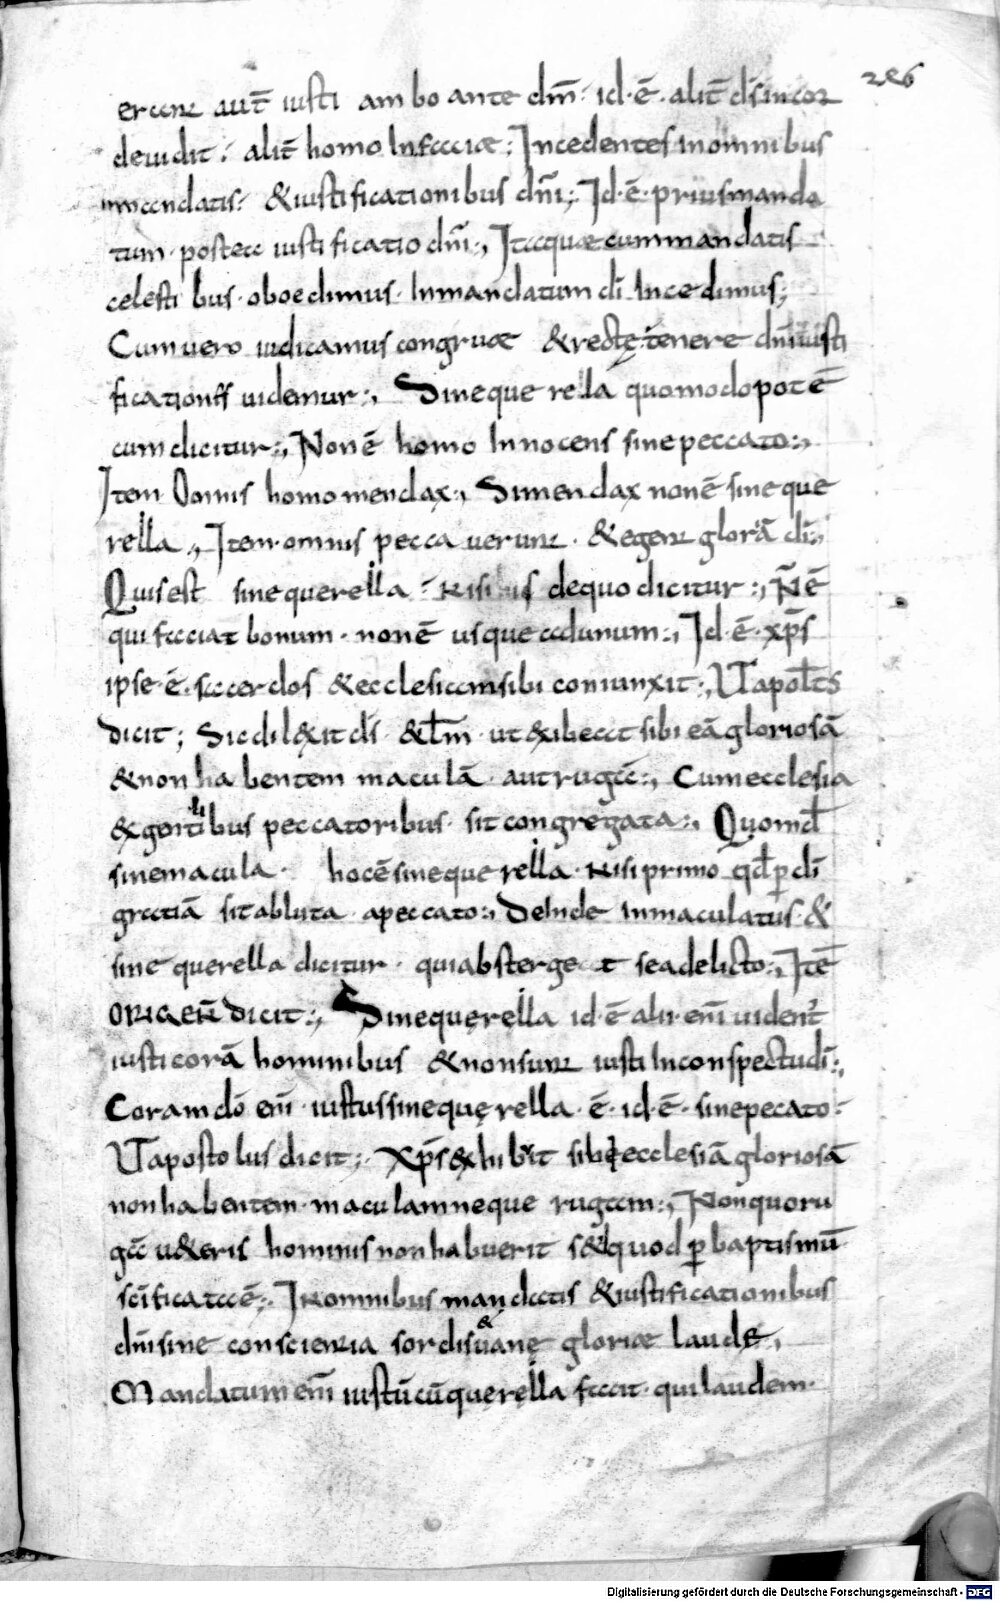 286
erant aut̄ iusti ambo ante dm̄· id· ē· alit̄ d̄s in cor
de uidit· alit̄ homo In faciæ:, Incedentes in omnibus
mandatis· & iustificationibus dn̄i:, Id· ē· prius manda
tum· postea iustificatio dn̄i:, Itaque cum mandatis
celestibus· oboedimus· In mandatum dī Incedimus;
Cum uero iudicamus congruæ & recte tenere dn̄i iusti
ficationes uidemur:, Sine querella quomodo pot ē
cum dicitur:, Non ē homo Innocens sine peccato:,
Item Omnis homo mendax:, Si mendax non ē sine que
rella:, Item· omnis peccauerunt· & egent glor̄ā dī:,
Quis est sine querella· Nisi is de quo dicitur:, N̄ ē
qui faciat bonum· non ē usque ad unum:, Id· ē· xp̄s
ipse· ē· sacerdos & ecclesiam sibi coniunxit:, Ut apol̄ts
dicit; Sic dil&xit d̄s & l̄m· ut &ibeat sibi eā gloriosā
& non habentem maculā· aut rugā:, Cum ecclesia
& gentilibus peccatoribus· sit congregata:, Quomd̄
sine macula· hoc ē sine querella· Nisi primo qd̄ p̱ dī
gratiā sit abluta· a peccato:, Deinde inmaculatus· &
sine querella dicitur· qui absterge t se a delicto:, Itē
ORIGEN̄ dicit:, Sine querella id· ē alii· eni᷒ uident᷒
iusti corā hominibus & non sunt iusti In conspectu dī:,
Coram dō eni᷒· iustus sine querella· ē· id· ē· sine pecato·
Ut apostolus dicit;· Xp̄s &hibuit sibi ecclesiā gloriosā
non habentem· maculam neque rugam:, Non quo ru
gā u&eris hominis non habuerit s& quod p̱ baptismū
sc̄ificata ē:, IN omnibus mandatis & iustificationibus
dn̄i sine conscientia sordis & uane gloriæ laude,
Mandatum eni᷒ iustū cū querella facit· qui laudem·
Digitalisierung gefördert durch die Deutsche Forschungsgemeinschaft - DFG